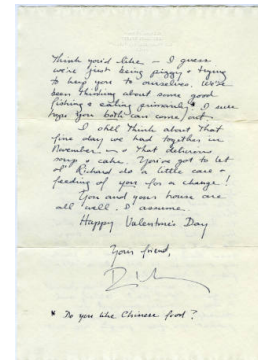 think you'd like – I guess
we're just being piggy & trying
to keep you to ourselves. We've
been thinking about some good
fishing & eating primarily* I sure
hope you both can come out.
I still think about that
fine day we had together in
November – & that delicious
soup & cake. You've got to let
ol' Richard do a little care &
feeding of you for a change!
You and your house are
all well. I assume.
Happy Valentine's Day
Your friend,
* Do you like Chinese food?